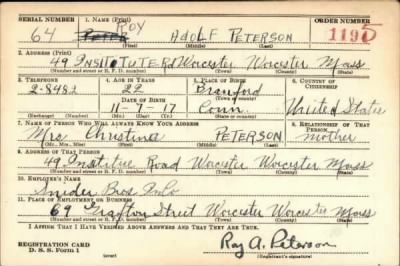 SERIAL NUMBER 1. NAME (Print) ORDER NUMBER
64 Peter ROY ADOLF PETERSON 1195
(First) (Middle) (Last)
2. ADDRESS (Print)
49 INSITITUTE Rd Worcester Worcester Mass
(Number and street or R. F. D. number) (Town) (County) (State)
3. TELEPHONE 4. AGE IN YEARS 5. PLACE OF BIRTH 6. COUNTRY OF CITIZENSHIP
2-8482 22 Branford
(Town or county)
DATE OF BIRTH
11-7-17 Conn. United States
(Exchange) (Number) (Mo.) (Day) (Yr.) (State or country)
7. NAME OF PERSON WHO WILL ALWAYS KNOW YOUR ADDRESS 8. RELATIONSHIP OF THAT PERSON
Mrs Christina PETERSON Mother
(Mr., Mrs., Miss) (First) (Middle) (Last)
9. ADDRESS OF THAT PERSON
49 Institue Road Worcester Worcester Mass
(Number and street or R. F. D. number) (Town) (County) (State)
10. EMPLOYER'S NAME
Snider Bros
11. PLACE OF EMPLOYMENT OR BUSINESS
69 Grafton Street Worcester Worcester Mass
(Number and street or R. F. D. number) (Town) (County) (State)
I AFFIRM THAT I HAVE VERIFIED ABOVE ANSWERS AND THAT THEY ARE TRUE.
REGISTRATION CARD
D. S. S. Form 1
Roy A. Peterson
(Registrant's signature)